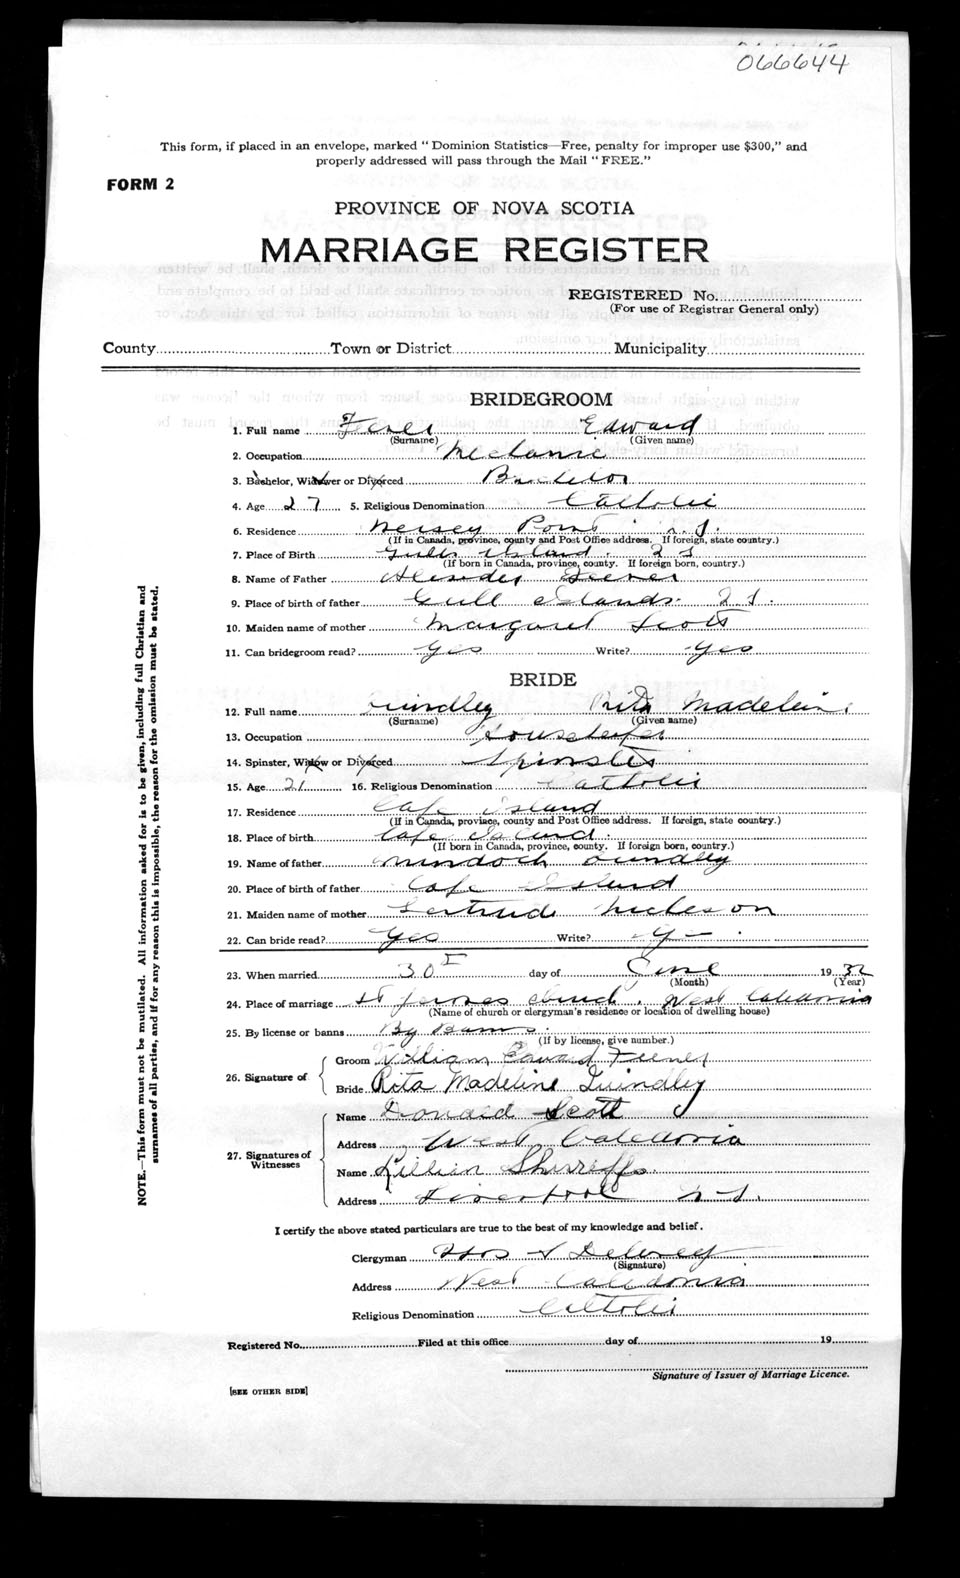 066644
This form, if placed in an envelope, marked “ Dominion Statistics—Free, penalty for improper use $300,” and
properly addressed will pass through the Mail “ FREE.”
FORM 2
PROVINCE OF NOVA SCOTIA
MARRIAGE REGISTER
REGISTERED No.
(For use of Registrar General only)
County Town or District Municipality
BRIDEGROOM
1. Full name Edward
(Surname) (Given name)
2. Occupation Mechanic
3. Bachelor, Widower or Divorced Bachelor
4. Age 27 5. Religious Denomination Catholic
6. Residence Mersey Point N.S.
(If in Canada, province, county and Post Office address. If foreign, state country.)
7. Place of Birth Island
(If born in Canada, province, county. If foreign born, country.)
8. Name of Father
9. Place of birth of father Gull Islands
10. Maiden name of mother Margaret Scott
11. Can bridegroom read? Yes Write? Yes
BRIDE
12. Full name Quindley Rita Madeleine
(Surname) (Given name)
13. Occupation Housekeeper
14. Spinster, Widow or Divorced Spinster
15. Age 21 16. Religious Denomination Catholic
17. Residence Cape Island
(If in Canada, province, county and Post Office address. If foreign, state country.)
18. Place of birth Cape Island
(If born in Canada, province, county. If foreign born, country.)
19. Name of father Murdoch Quindley
20. Place of birth of father Cape Island
21. Maiden name of mother Gertrude Nickeson
22. Can bride read? Yes Write? Y
23. When married 30 day of June 1932
(Month) (Year)
24. Place of marriage St church, West Caledonia
(Name of church or clergyman's residence or location of dwelling house)
25. By license or banns By Banns.
(If by license, give number.)
26. Signature of
Groom William Edward Feener
Bride Rita Madeline Quindley
27. Signatures of
Witnesses
Name Donald Scott
Address West Caledonia
Name Lillian Shirreffs
Address Liverpool N.S.
I certify the above stated particulars are true to the best of my knowledge and belief.
Clergyman
(Signature)
Address West Caledonia
Religious Denomination Catholic
Registered No. Filed at this office day of 19
Signature of Issuer of Marriage Licence.
[SEE OTHER SIDE]
NOTE.—This form must not be mutilated. All information asked for is to be given, including full Christian and
surnames of all parties, and if for any reason this is impossible, the reason for the omission must be stated.